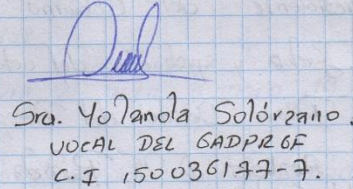 Sra. Yolanda Solórzano.
VOCAL DEL GADPRGF
C. I 150036177-7.